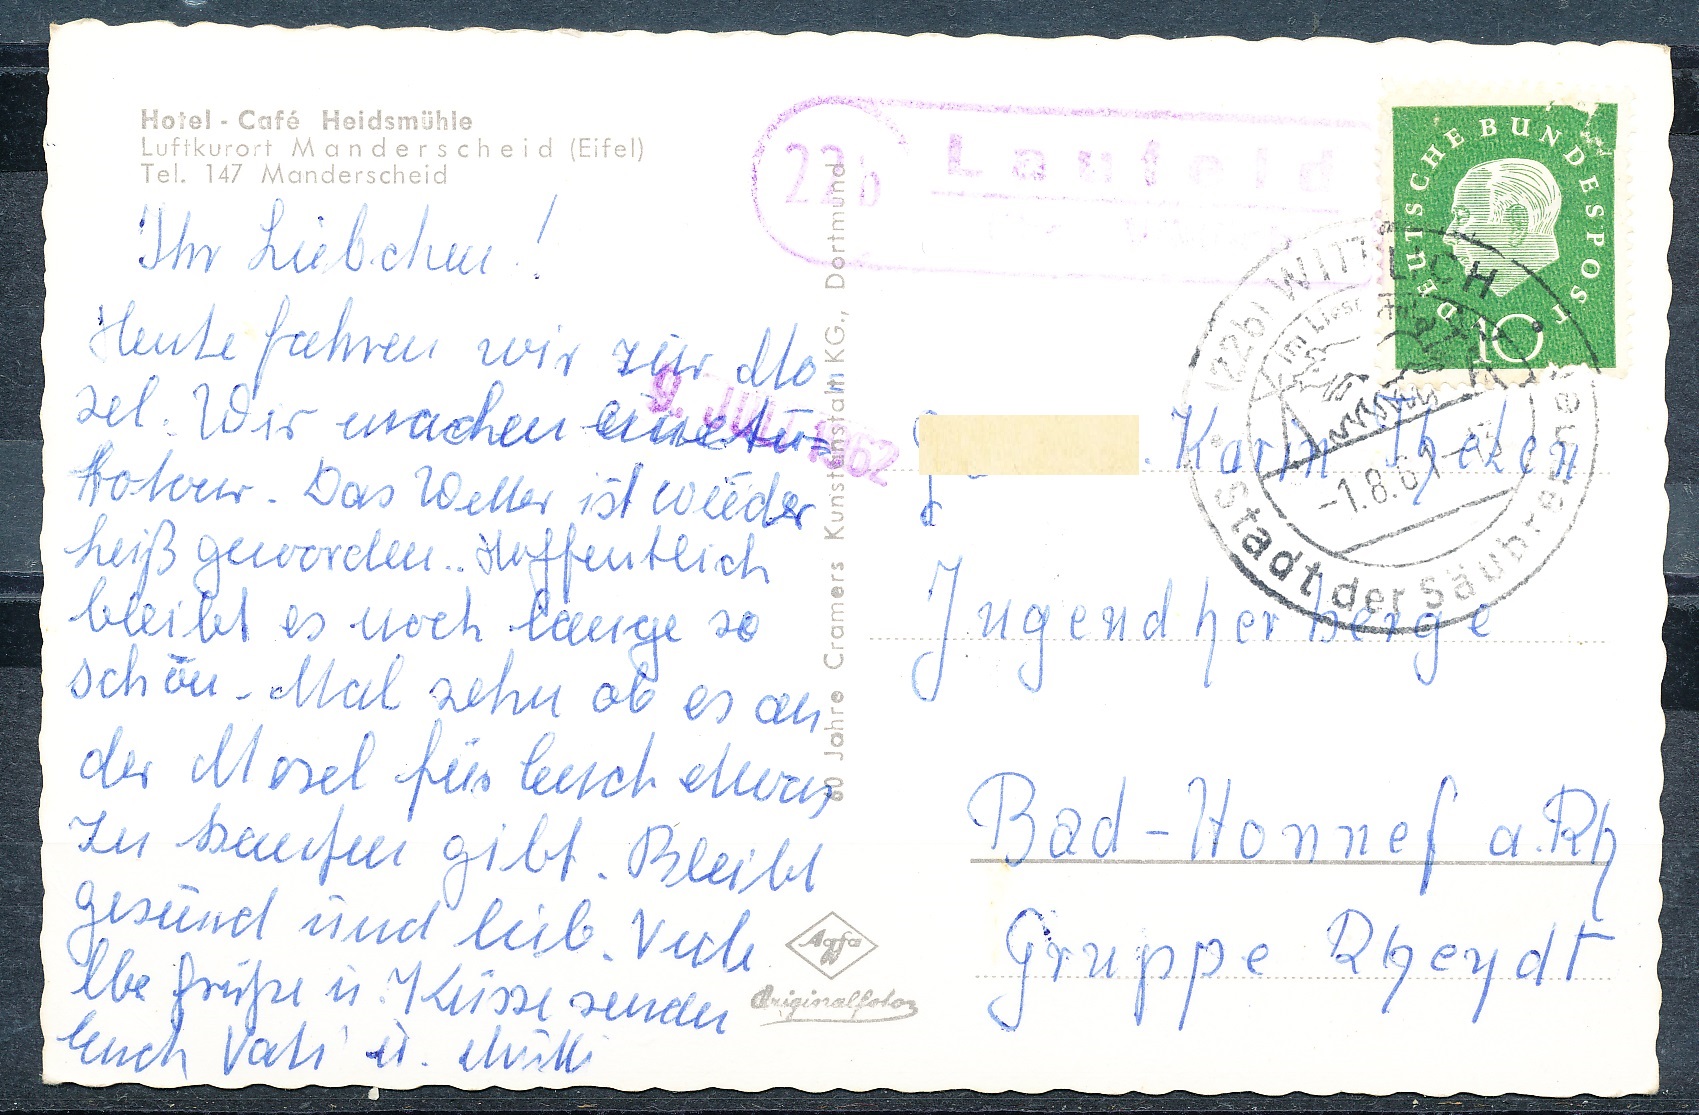 Hotel - Café Heidsmühle
Luftkurort Manderscheid (Eifel)
Tel. 147 Manderscheid
22b
Laufeld
DEUTSCHE BUNDESPOST
10
(22b) WITTLICH
im Lieser
-1.8.61-13
Stadt der Säubrenner
9. JULI 1962
60 Jahre Cramers Kunstanstalt KG., Dortmund
Ihr Liebchen!
Heute fahren wir zur Mo
sel. Wir machen eine Au=
totour. Das Wetter ist wieder
heiß geworden. Hoffentlich
bleibt es noch lange so
schön. Mal sehn ob es an
der Mosel für Euch etwas
zu kaufen gibt. Bleibt
gesund und lieb. Viele
lbe Grüße u. Küsse senden
Euch Vati u. Mutti
Karin
Jugendherberge
Bad-Honnef a. Rh
Gruppe Rheydt
Agfa
Originalfoto